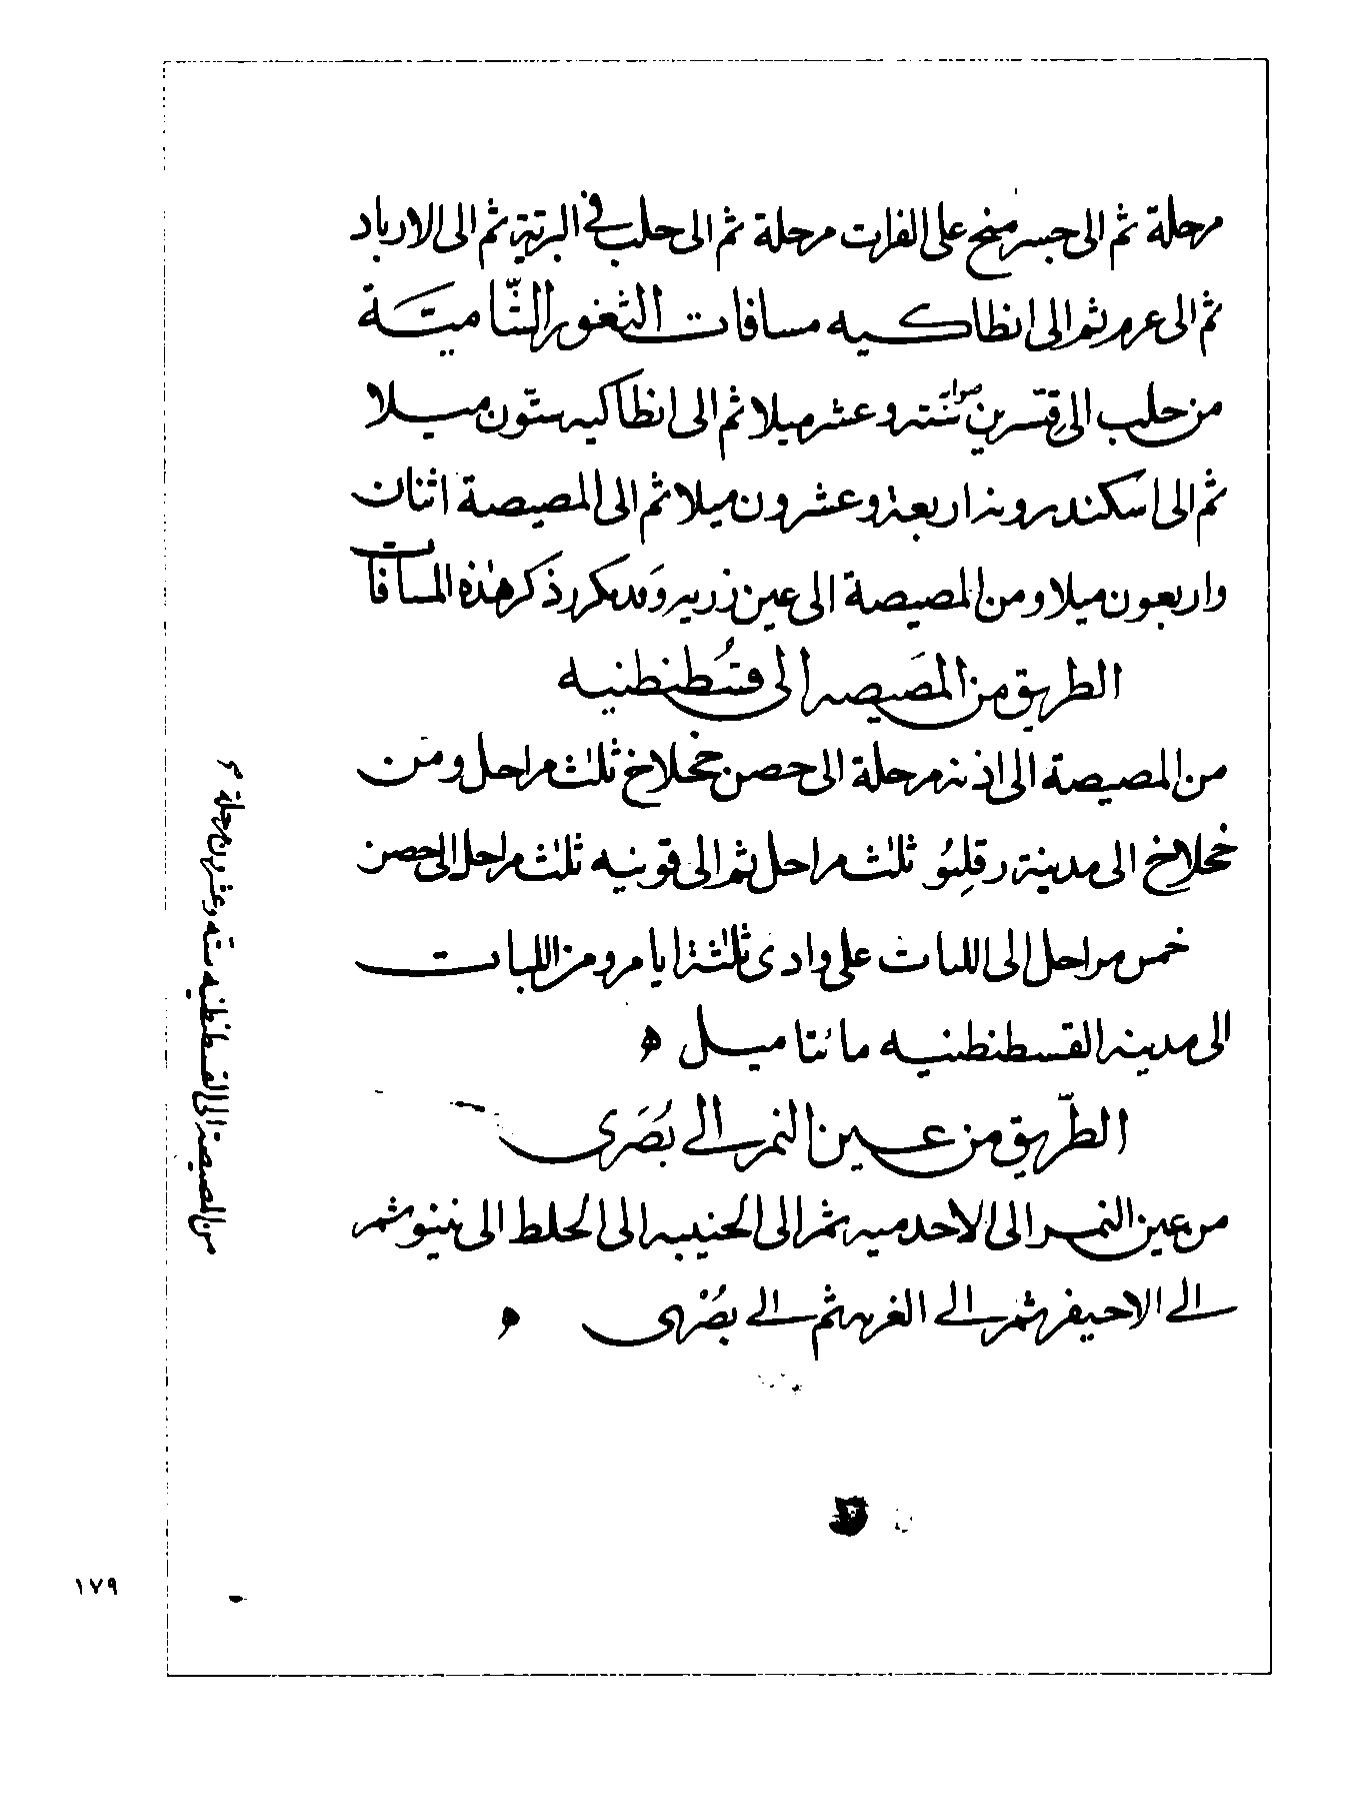 مرحلة ثم الى جسر منبج على الفرات مرحلة ثم الى حلب في البرّيّة ثم الى الارباد
ثم الى عرم ثم الى انطاكيه مسافات الثغور الشّاميّة
من حلب الى قنّسرين ستّه وعشر ميلا ثم الى انطاكيه ستّون ميلا
ثم الى اسكندرونه اربعة وعشرون ميلا ثم الى المصيصة اثنان
واربعون ميلا ومن المصيصة الى عين زربه وقد تكرر ذكر هذه المسافات
الطريق من المصيصه الى قسُطنطنيه
من المصيصة الى اذنه مرحلة الى حصن ثلث مراحل ومن
الى مدينة ثلث مراحل ثم الى قونيه ثلث مراحل الى حصن
خمس مراحل الى اللبات على وادى ثلثة ايام ومن اللبات
الى مدينه القسطنطنيه مائتا ميل ه
الطّريق من عين التمر الى بُصَرى
من عين التمر الى الاحدميه ثم الى الحنيبه الى الحلط الى نينو ثم
الى الاحيفر ثم الى الغربه ثم الى بصُرى ه
من المصيصة الى القسطنطنيه سته وعشرون مرحلة
١٧٩